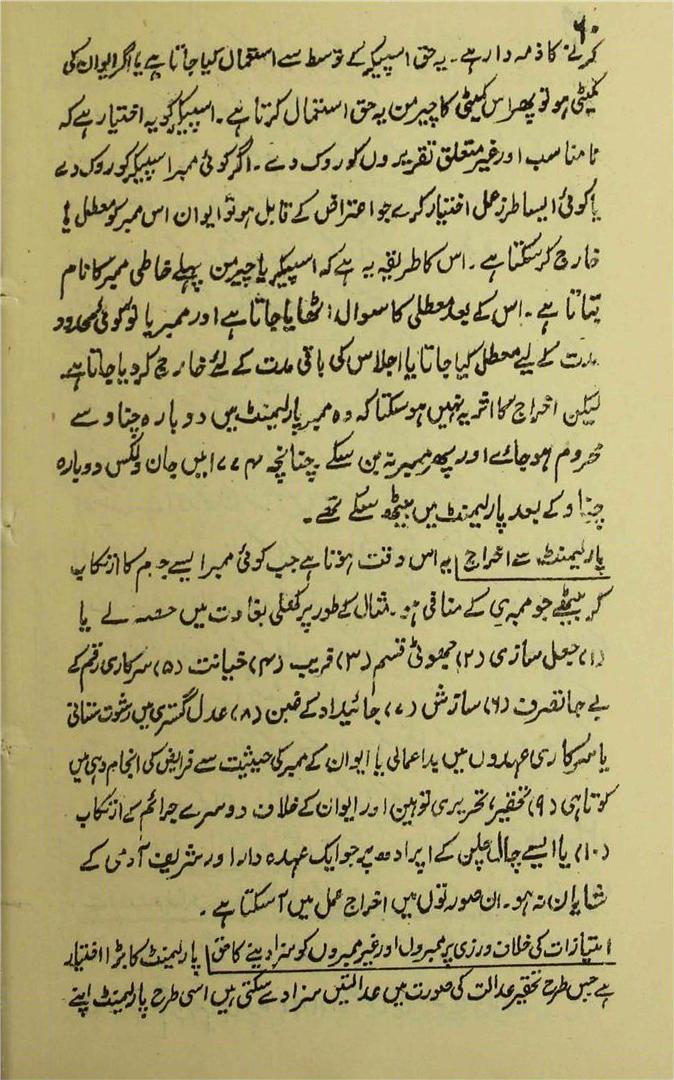 ۶۰
کرنے کا ذمہ دار ہے۔ یہ حق اسپیکر کے توسط سے استعمال کیا جاتا ہے یا اگر ایوان کی
کمیٹی ہو تو پھر اس کمیٹی کا چیرمن یہ حق استعمال کرتا ہے۔ اسپیکر کو یہ اختیار ہے کہ
نا مناسب اور غیر متعلق تقریروں کو روک دے۔ اگر کوئی ممبر اسپیکر کو روک دے
یا کوئی ایسا طرز عمل اختیار کرے جو اعتراض کے قابل ہو تو ایوان اس ممبر کو معطل یا
خارج کر سکتا ہے۔ اس کا طریقہ یہ ہے کہ اسپیکر یا چیرمن پہلے خاطی ممبر کا نام
بتاتا ہے۔ اس کے بعد معطلی کا سوال اٹھایا جاتا ہے اور ممبر یا تو کوئی محدود
مدت کے لیے معطل کیا جاتا یا اجلاس کی باقی مدت کے لئے خارج کر دیا جاتا ہے۔
لیکن اخراج کا اثر یہ نہیں ہو سکتا کہ وہ ممبر پارلیمنٹ میں دوبارہ چناو سے
محروم ہو جائے اور پھر ممبر نہ بن سکے چنانچہ ۱۷۷۴ میں جان ولکس دوبارہ
چناو کے بعد پارلیمنٹ میں بیٹھ سکے تھے۔
پارلیمنٹ سے اخراج | یہ اس وقت ہوتا ہے جب کوئی ممبر ایسے جرم کا ارتکاب
کر بیٹھے جو ممبری کے منافی ہو۔ مثال کے طور پر کھلی بغاوت میں حصہ لے یا
(۱) جعل سازی (۲) جھوٹی قسم (۳) فریب (۴) خیانت (۵) سرکاری رقم کے
بے جا تصرف (۶) سازش (۷) جائیداد کے غبن (۸) عدل گستری میں رشوت ستانی
یا سرکاری عہدوں میں بداعمالی یا ایوان کے ممبر کی حیثیت سے فرایض کی انجام دہی میں
کوتاہی (۹) تحقیر، تحریری توہین اور ایوان کے خلاف دوسرے جرائم کے ارتکاب
(۱۰) یا ایسے چال چلن کے ایراد پر جو ایک عہدہ دار اور شریف آدمی کے
شایان نہ ہو۔ ان صورتوں میں اخراج عمل میں آسکتا ہے۔
امتیازات کی خلاف ورزی پر ممبروں اور غیر ممبروں کو سزا دینے کا حق | پارلیمنٹ کا بڑا اختیار
ہے جس طرح تحقیر عدالت کی صورت میں عدالتیں سزا دے سکتی ہیں اسی طرح پارلیمنٹ اپنے